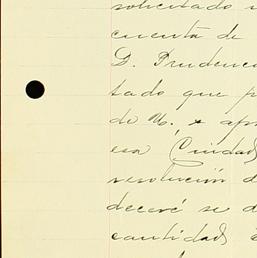 solicitado
cuenta de
D. Prudenc
tado que p
de M. é apr
esa Ciudad
resolución d
deceré se d
cantidad